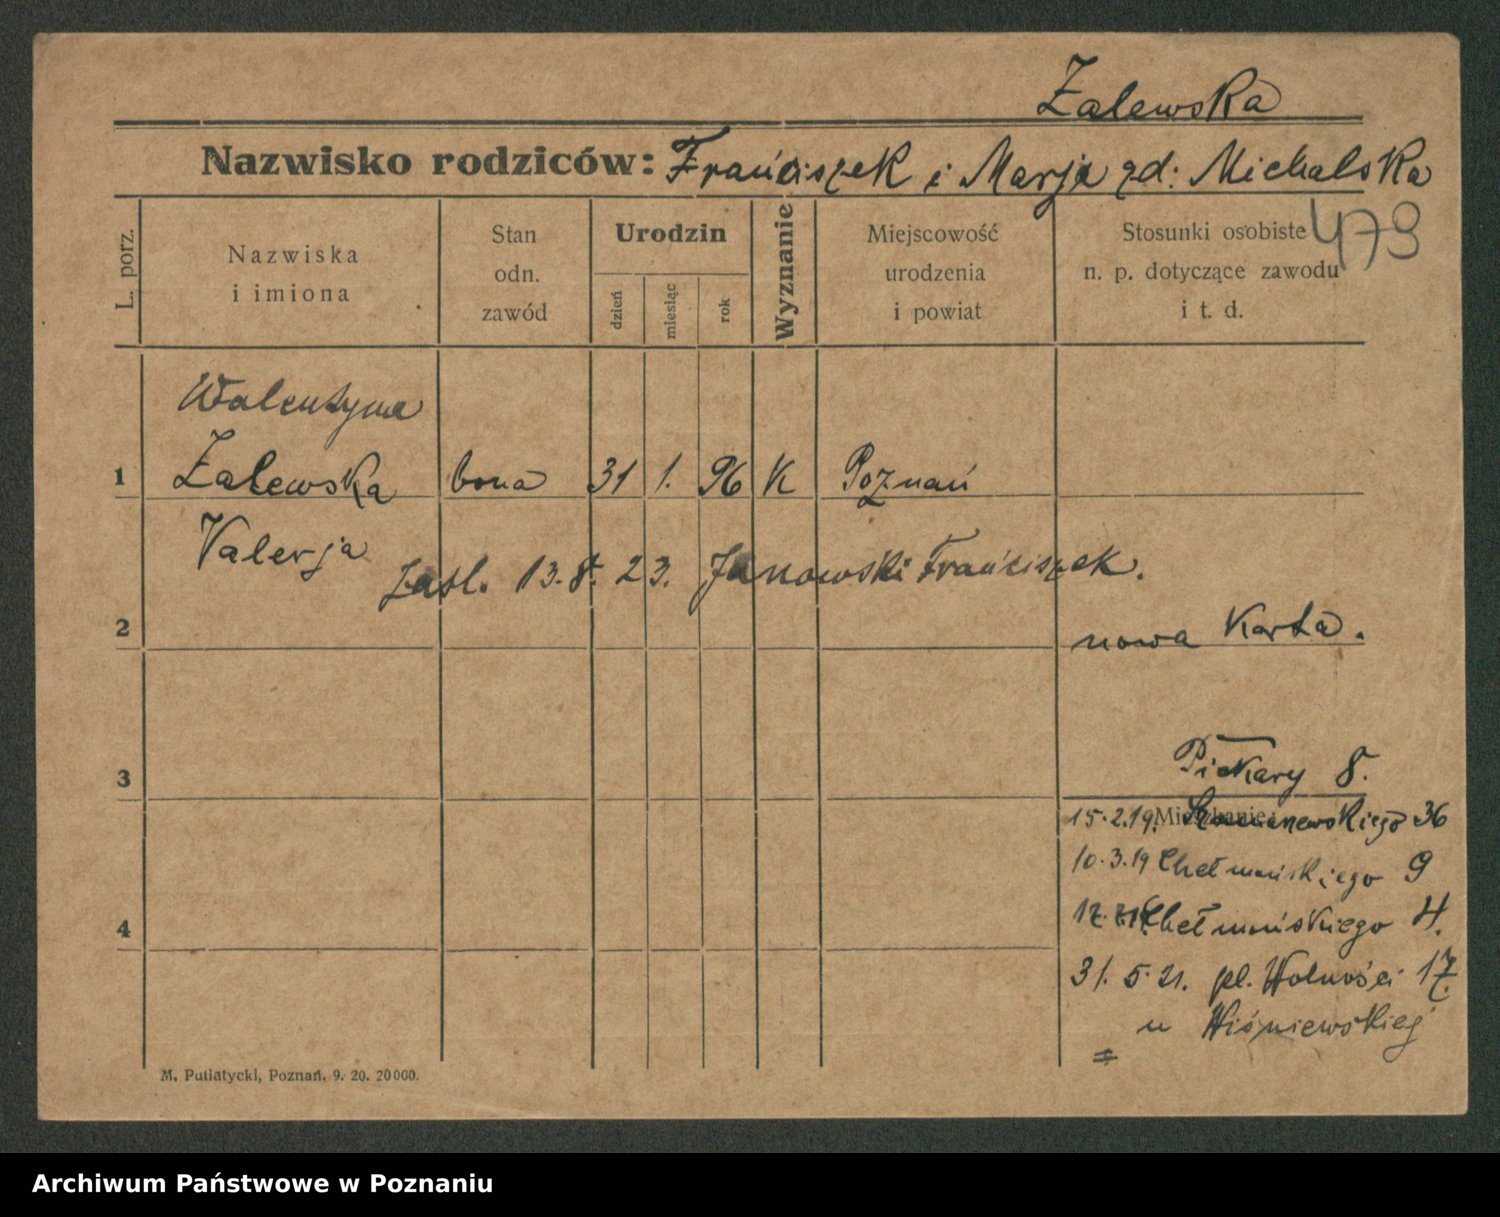 Zalewska
Nazwisko rodziców: Franciszek i Marja zd: Michalska
479
L. porz.
Nazwiska
i imiona
Stan
odn.
zawód
Urodzin
dzień
miesiąc
rok
Wyznanie
Miejscowość
urodzenia
i powiat
Stosunki osobiste
n. p. dotyczące zawodu
i t. d.
Walentyna
1 Zalewska bona 31 1. 96 K Poznań
Valerja
zasl. 13. 8. 23. Janowski Franciszek.
2 nowa Karta.
Piekary 8.
3
Mieszkanie:
15. 2. 19. 36
10. 3. 19 Chełmońskiego 9
Chełmońskiego 4.
4
31. 5. 21. pl. Wolności 17.
u Wiśniewskieg
=
M. Putiatycki, Poznań. 9. 20. 20000.
Archiwum Państwowe w Poznaniu